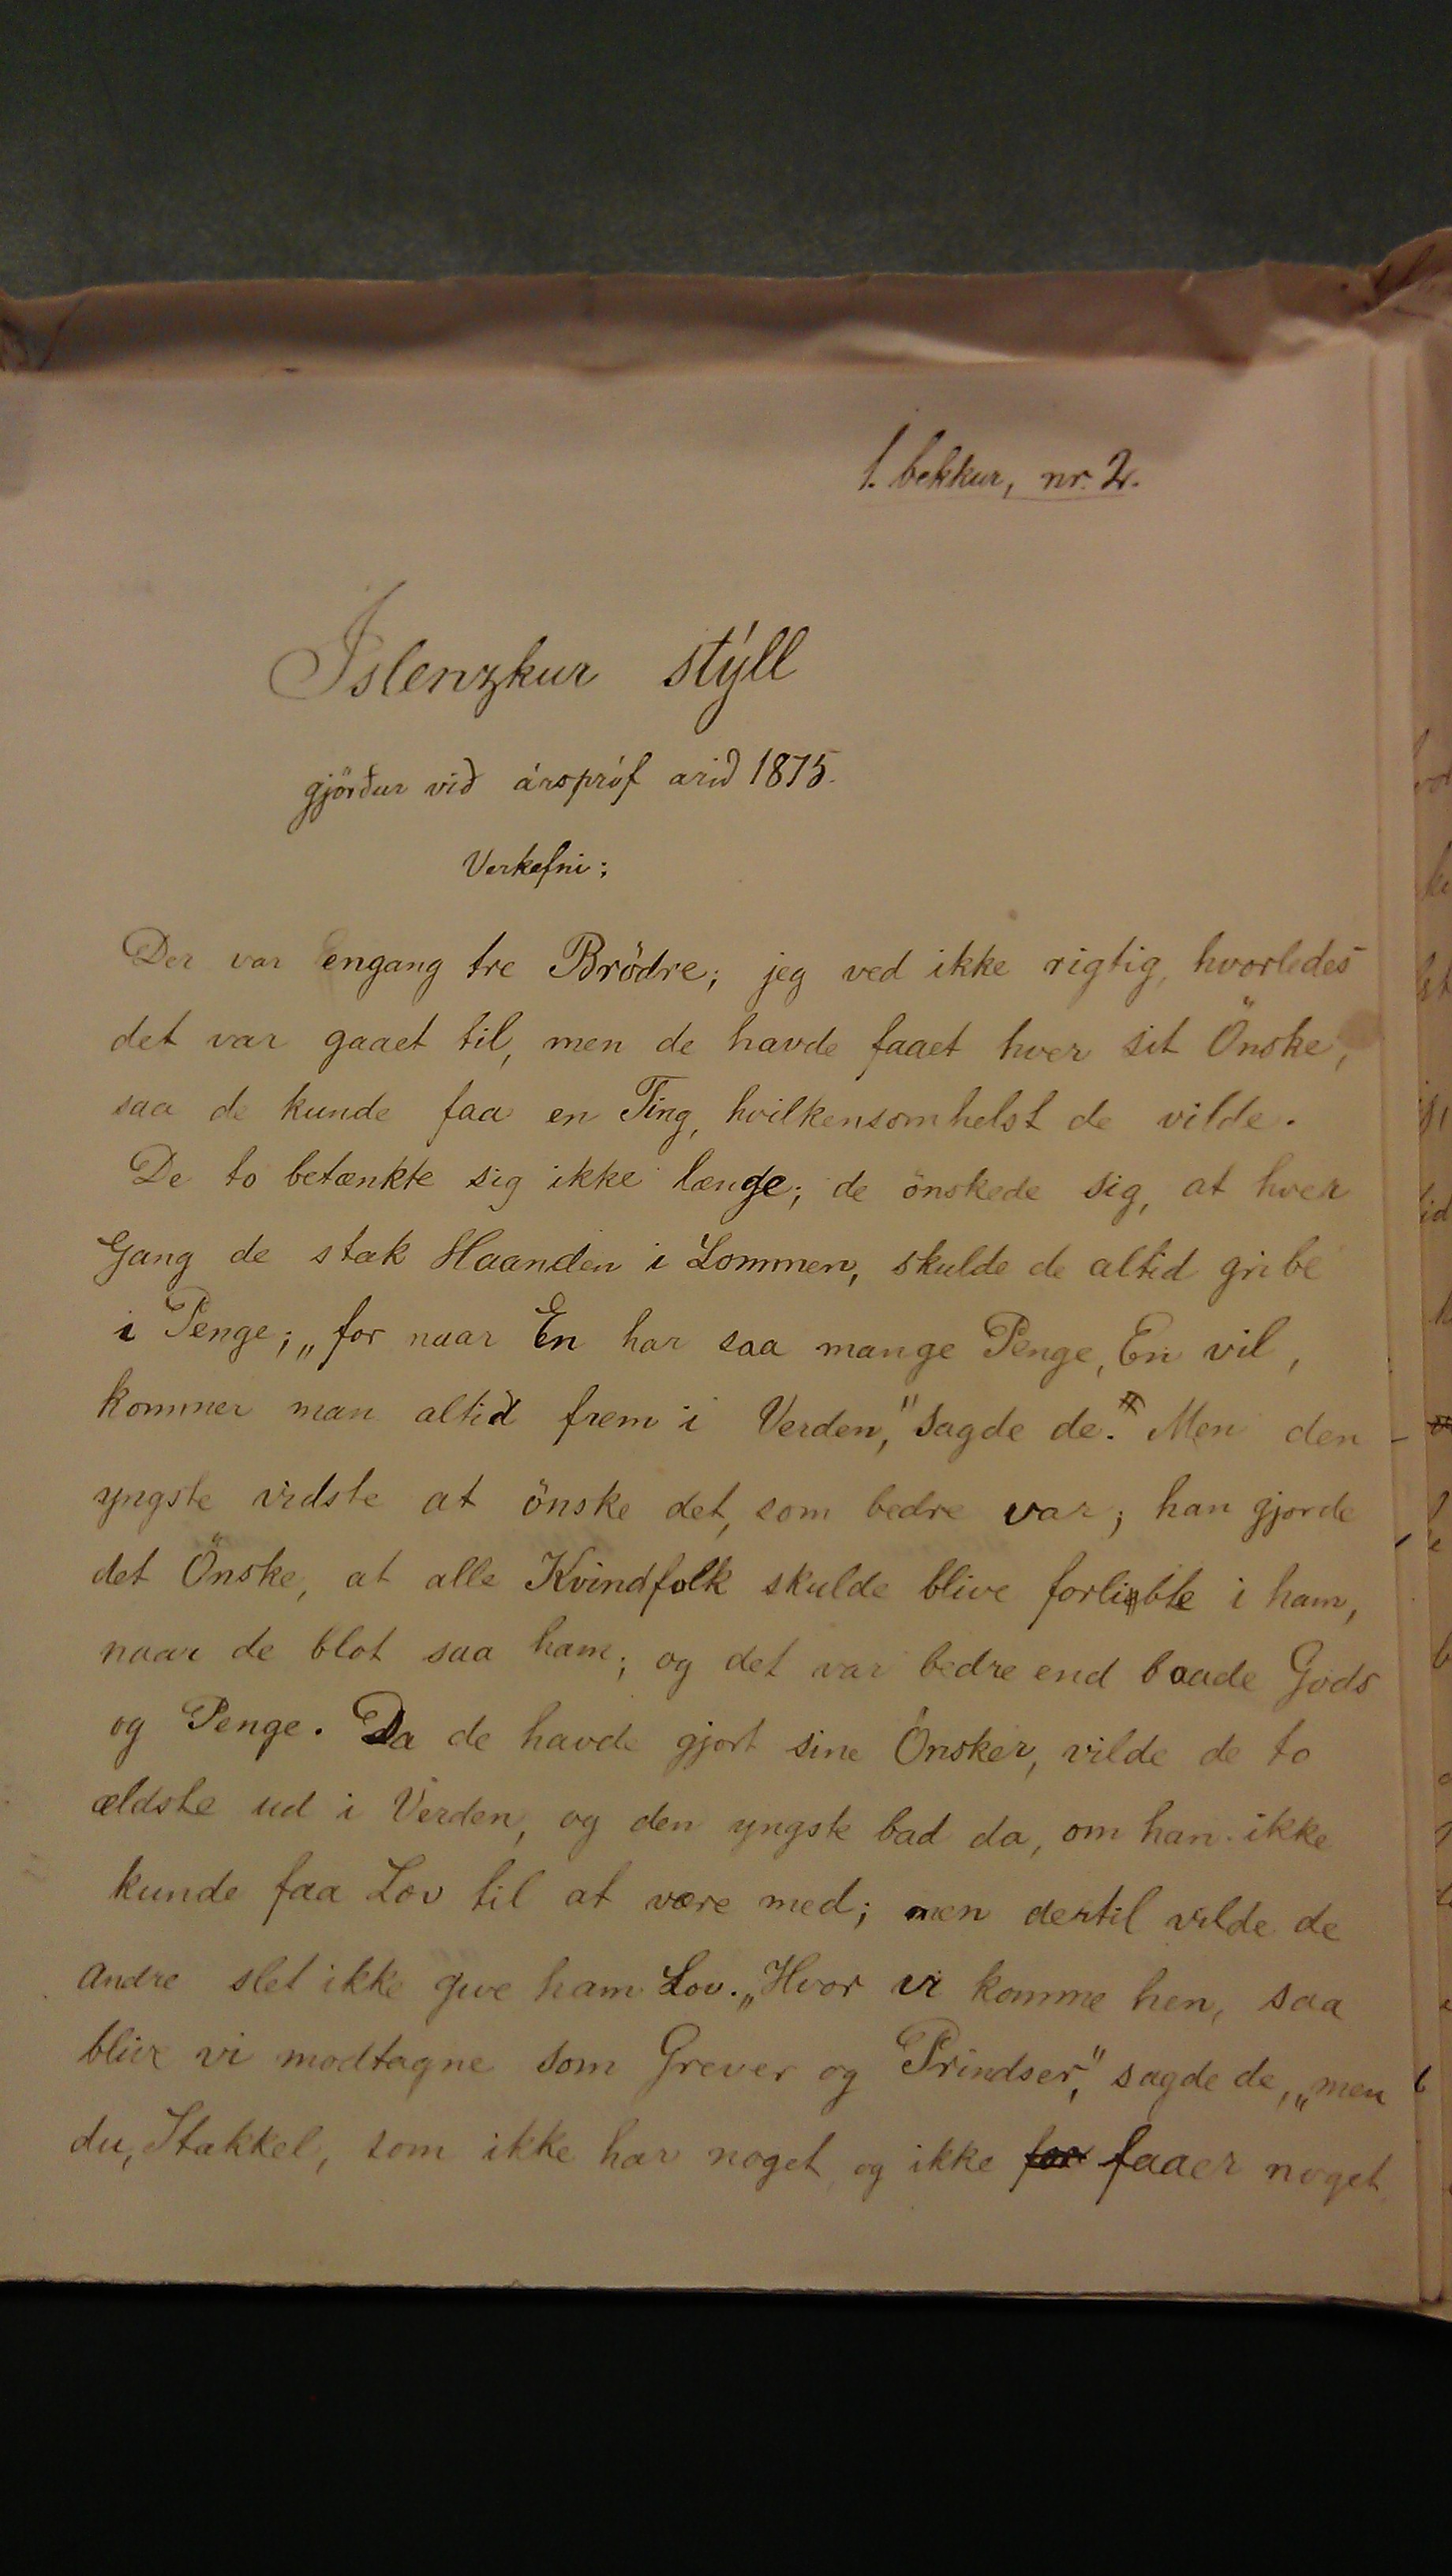 1. bekkur, nr. 2.
Íslenzkur stýll
gjörður við árspróf arið 1875.
Verkefni:
Der var engang tre Brödre; jeg ved ikke rigtig, hvorledes
det var gaaet til, men de havde faaet hver sit Önske,
saa de kunde faa en Ting, hvilkensomhelst de vilde.
De to betænkte sig ikke længe; de önskede sig, at hver
Gang de stak Haanden i Lommen, skulde de altid gribe
i Penge; „for naar En har saa mange Penge, En vil,
kommer man altid frem i Verden," sagde de. Men den
yngste vidste at önske det, som bedre var; han gjorde
det Önske, at alle Kvindfolk skulde blive forlibte i ham,
naar de blot saa ham; og det var bedre end baade Gods
og Penge. Da de havde gjort sine Önsker, vilde de to
ældste ud i Verden, og den yngste bad da, om han ikke
kunde faa Lov til at være med; men dertil vilde de
andre slet ikke give ham Lov. „Hvor vi komme hen, saa
blive vi modtagne som Grever og Prindser," sagde de, „men
du, Stakkel, som ikke har noget, og ikke for faaer noget